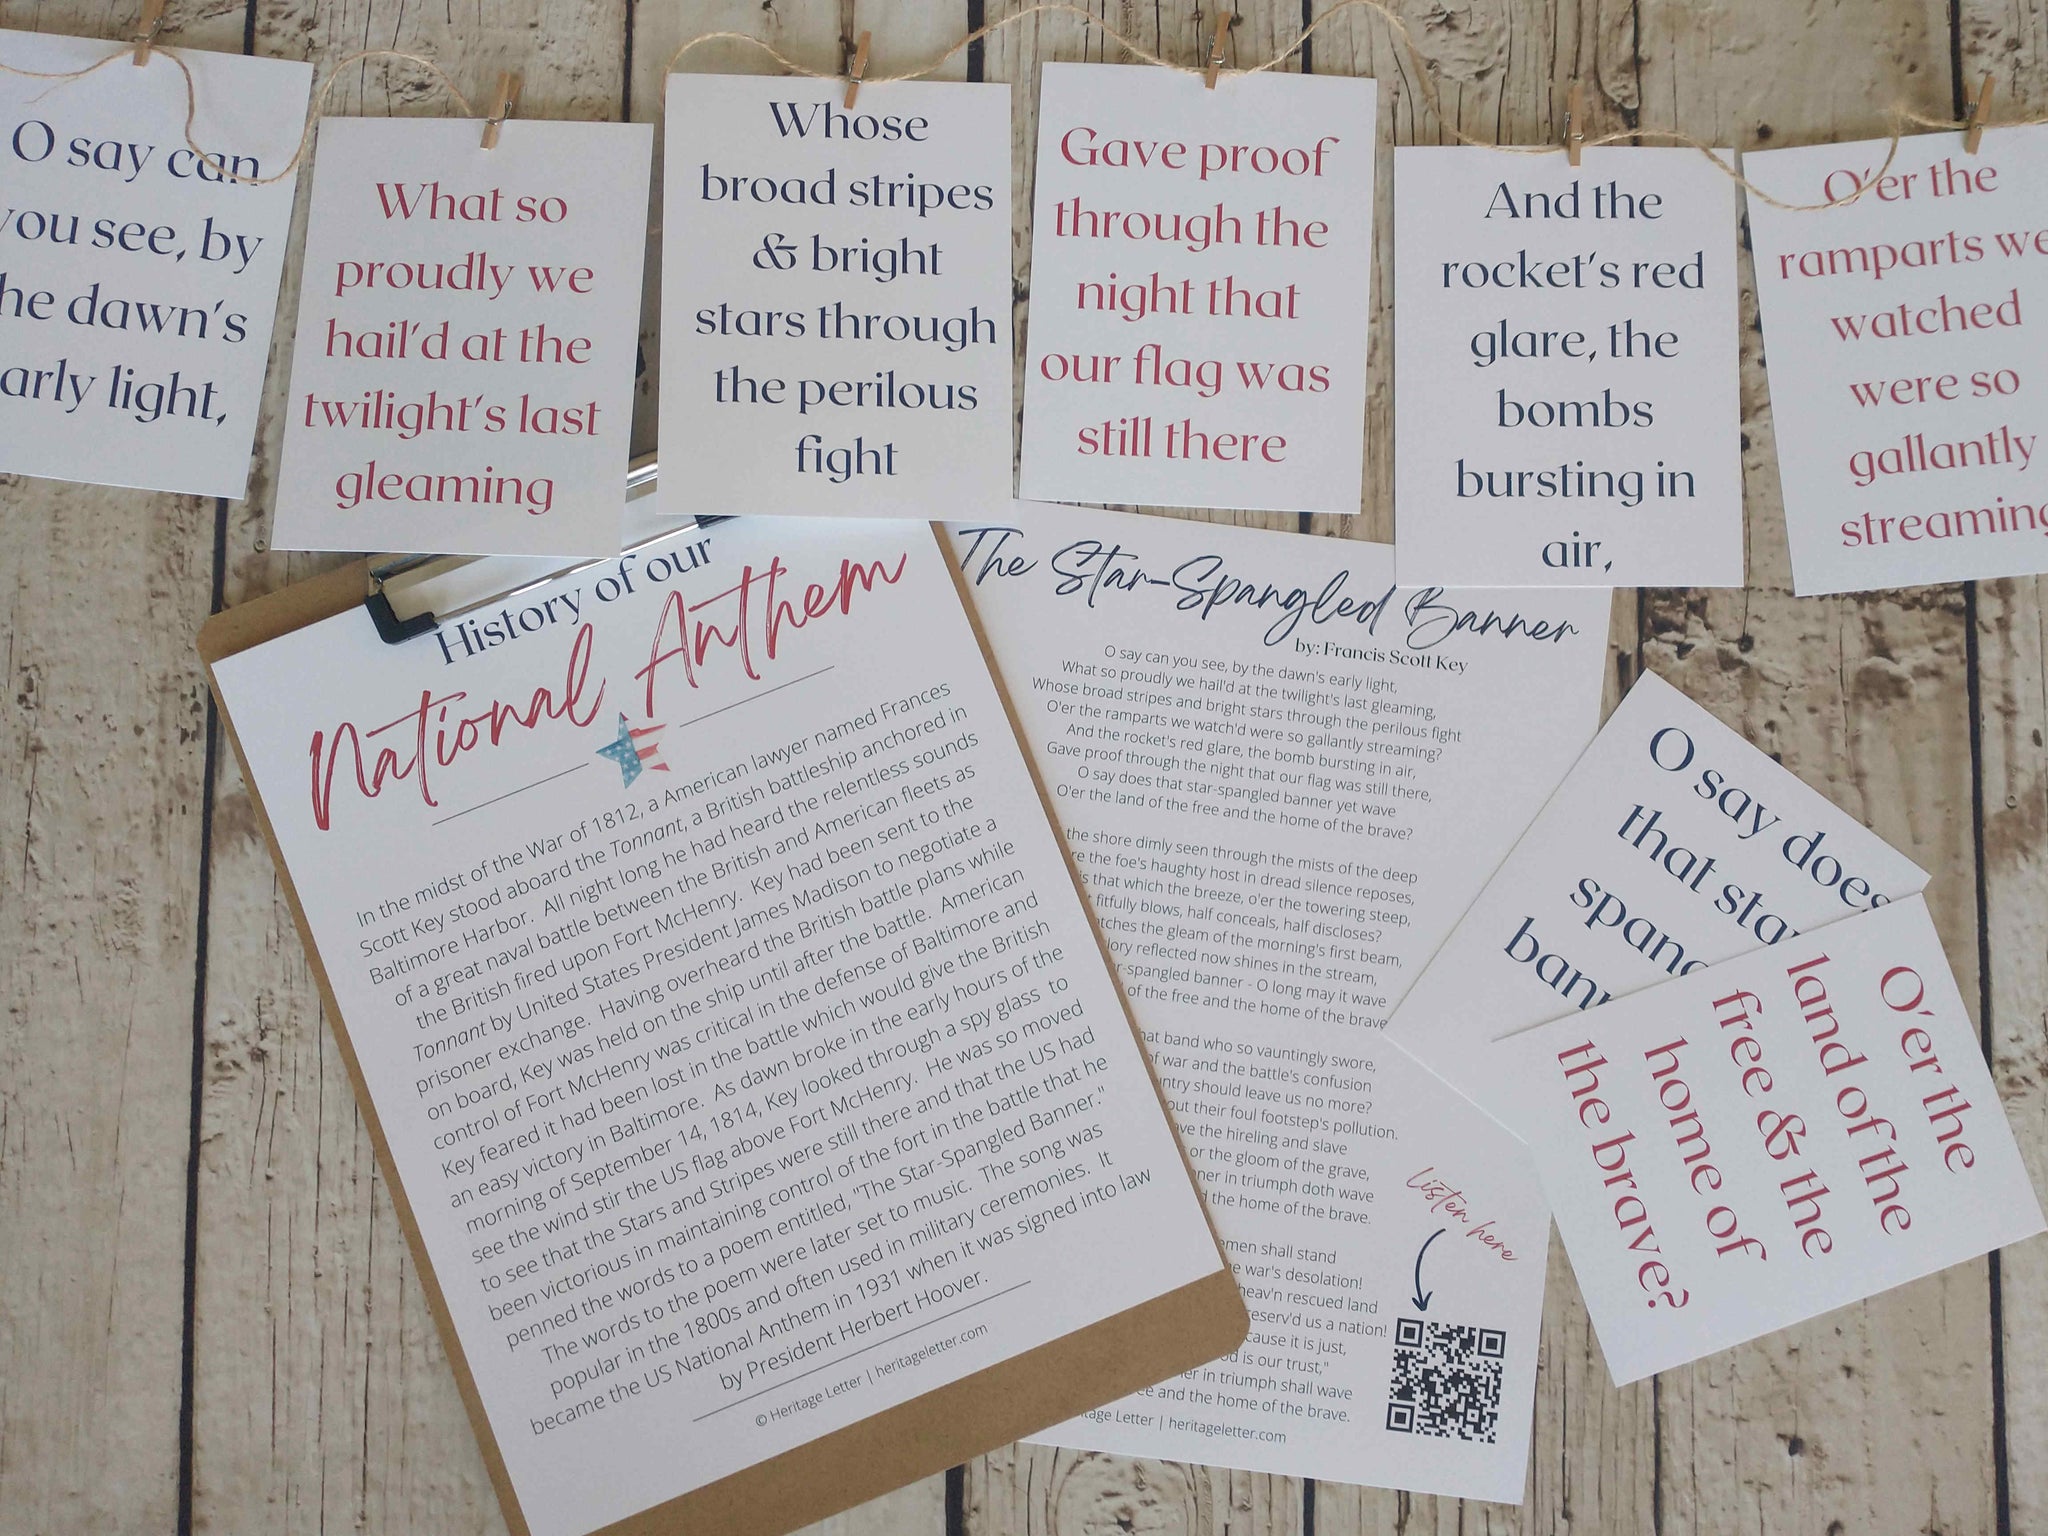 O say can
you see, by
he dawn's
arly light,
What so
proudly we
hail'd at the
twilight's last
gleaming
Whose
broad stripes
& bright
stars through
the perilous
fight
Gave proof
through the
night that
our flag was
still there
And the
rocket's red
glare, the
bombs
bursting in
air,
O'er the
ramparts we
watched
were so
gallantly
streaming
History of our
National Anthem
In the midst of the War of 1812, a American lawyer named Frances
Scott Key stood aboard the Tonnant, a British battleship anchored in
Baltimore Harbor. All night long he had heard the relentless sounds
of a great naval battle between the British and American fleets as
the British fired upon Fort McHenry. Key had been sent to the
Tonnant by United States President James Madison to negotiate a
prisoner exchange. Having overheard the British battle plans while
on board, Key was held on the ship until after the battle. American
control of Fort McHenry was critical in the defense of Baltimore and
Key feared it had been lost in the battle which would give the British
an easy victory in Baltimore. As dawn broke in the early hours of the
morning of September 14, 1814, Key looked through a spy glass to
see the wind stir the US flag above Fort McHenry. He was so moved
to see that the Stars and Stripes were still there and that the US had
been victorious in maintaining control of the fort in the battle that he
penned the words to a poem entitled, "The Star-Spangled Banner."
The words to the poem were later set to music. The song was
popular in the 1800s and often used in military ceremonies. It
became the US National Anthem in 1931 when it was signed into law
by President Herbert Hoover.
© Heritage Letter | heritageletter.com
The Star-Spangled Banner
by: Francis Scott Key
O say can you see, by the dawn's early light,
What so proudly we hail'd at the twilight's last gleaming,
Whose broad stripes and bright stars through the perilous fight
O'er the ramparts we watch'd were so gallantly streaming?
And the rocket's red glare, the bomb bursting in air,
Gave proof through the night that our flag was still there,
O say does that star-spangled banner yet wave
O'er the land of the free and the home of the brave?
the shore dimly seen through the mists of the deep
re the foe's haughty host in dread silence reposes,
is that which the breeze, o'er the towering steep,
fitfully blows, half conceals, half discloses?
tches the gleam of the morning's first beam,
lory reflected now shines in the stream,
r-spangled banner - O long may it wave
of the free and the home of the brave
hat band who so vauntingly swore,
of war and the battle's confusion
ntry should leave us no more?
out their foul footstep's pollution.
ave the hireling and slave
or the gloom of the grave,
ner in triumph doth wave
d the home of the brave.
emen shall stand
e war's desolation!
heav'n rescued land
eserv'd us a nation!
cause it is just,
od is our trust,"
er in triumph shall wave
ee and the home of the brave.
tage Letter | heritageletter.com
Listen here
O say does
that sta
spang
bann
O'er the
land of the
free & the
home of
the brave?